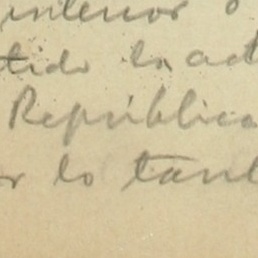 interior o
tido la act
República
r lo tant